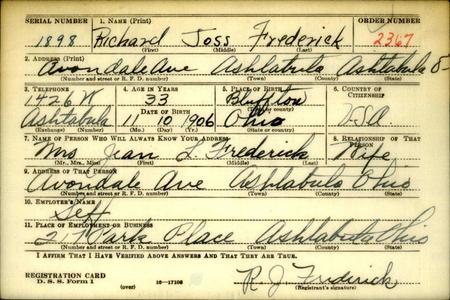 SERIAL NUMBER 1. NAME (Print) ORDER NUMBER
1898 Richard Joss Frederick 2367
(First) (Middle) (Last)
2. ADDRESS (Print)
Avondale Ave Ashtabula Ashtabula O
(Number and street or R. F. D. number) (Town) (County) (State)
3. TELEPHONE 4. AGE IN YEARS 5. PLACE OF BIRTH 6. COUNTRY OF CITIZENSHIP
1426 K 33 Bluffton
DATE OF BIRTH (Town or county)
Ashtabula 11 10 1906 Ohio U.S.A
(Exchange) (Number) (Mo.) (Day) (Yr.) (State or country)
7. NAME OF PERSON WHO WILL ALWAYS KNOW YOUR ADDRESS 8. RELATIONSHIP OF THAT PERSON
Mrs Jean L Frederick Wife
(Mr., Mrs., Miss) (First) (Middle) (Last)
9. ADDRESS OF THAT PERSON
Avondale Ave Ashtabula Ohio
(Number and street or R. F. D. number) (Town) (County) (State)
10. EMPLOYER'S NAME
Self
11. PLACE OF EMPLOYMENT OR BUSINESS
Park Place Ashtabula Ohio
(Number and street or R. F. D. number) (Town) (County) (State)
I AFFIRM THAT I HAVE VERIFIED ABOVE ANSWERS AND THAT THEY ARE TRUE.
R. J. Frederick
REGISTRATION CARD
D. S. S. Form 1 (over) 16-17105 (Registrant's signature)